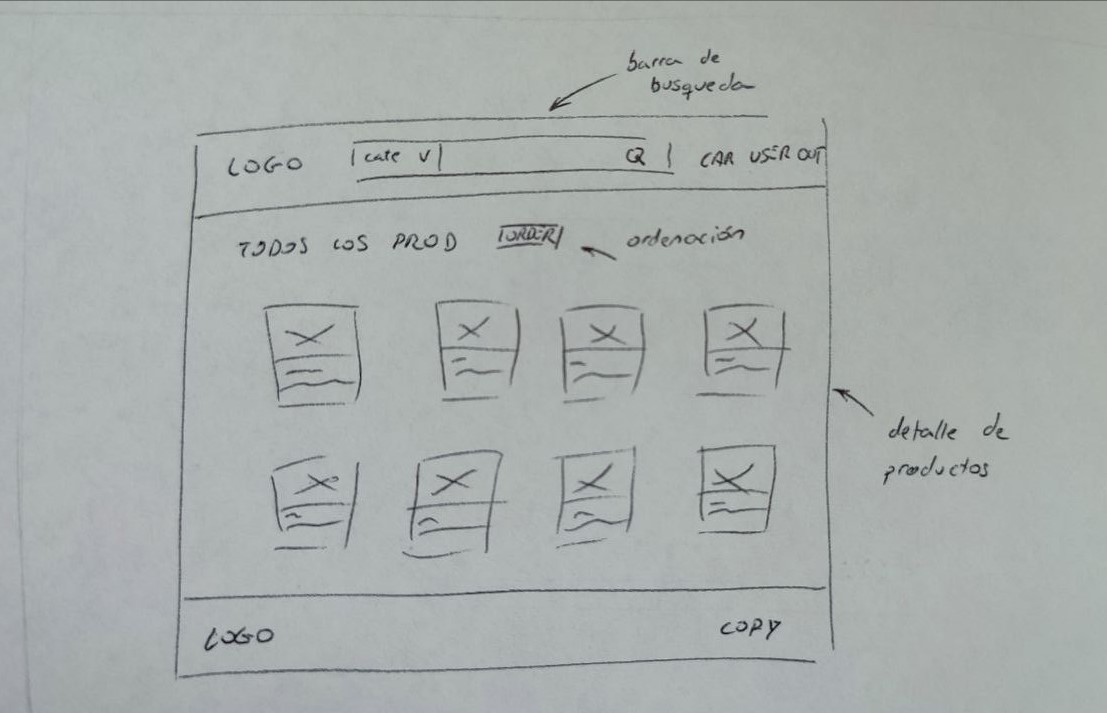 barra de
busqueda
LOGO cate V Q CAR USER OUT
TODOS LOS PROD ORDER ordenación
detalle de
productos
LOGO COPY